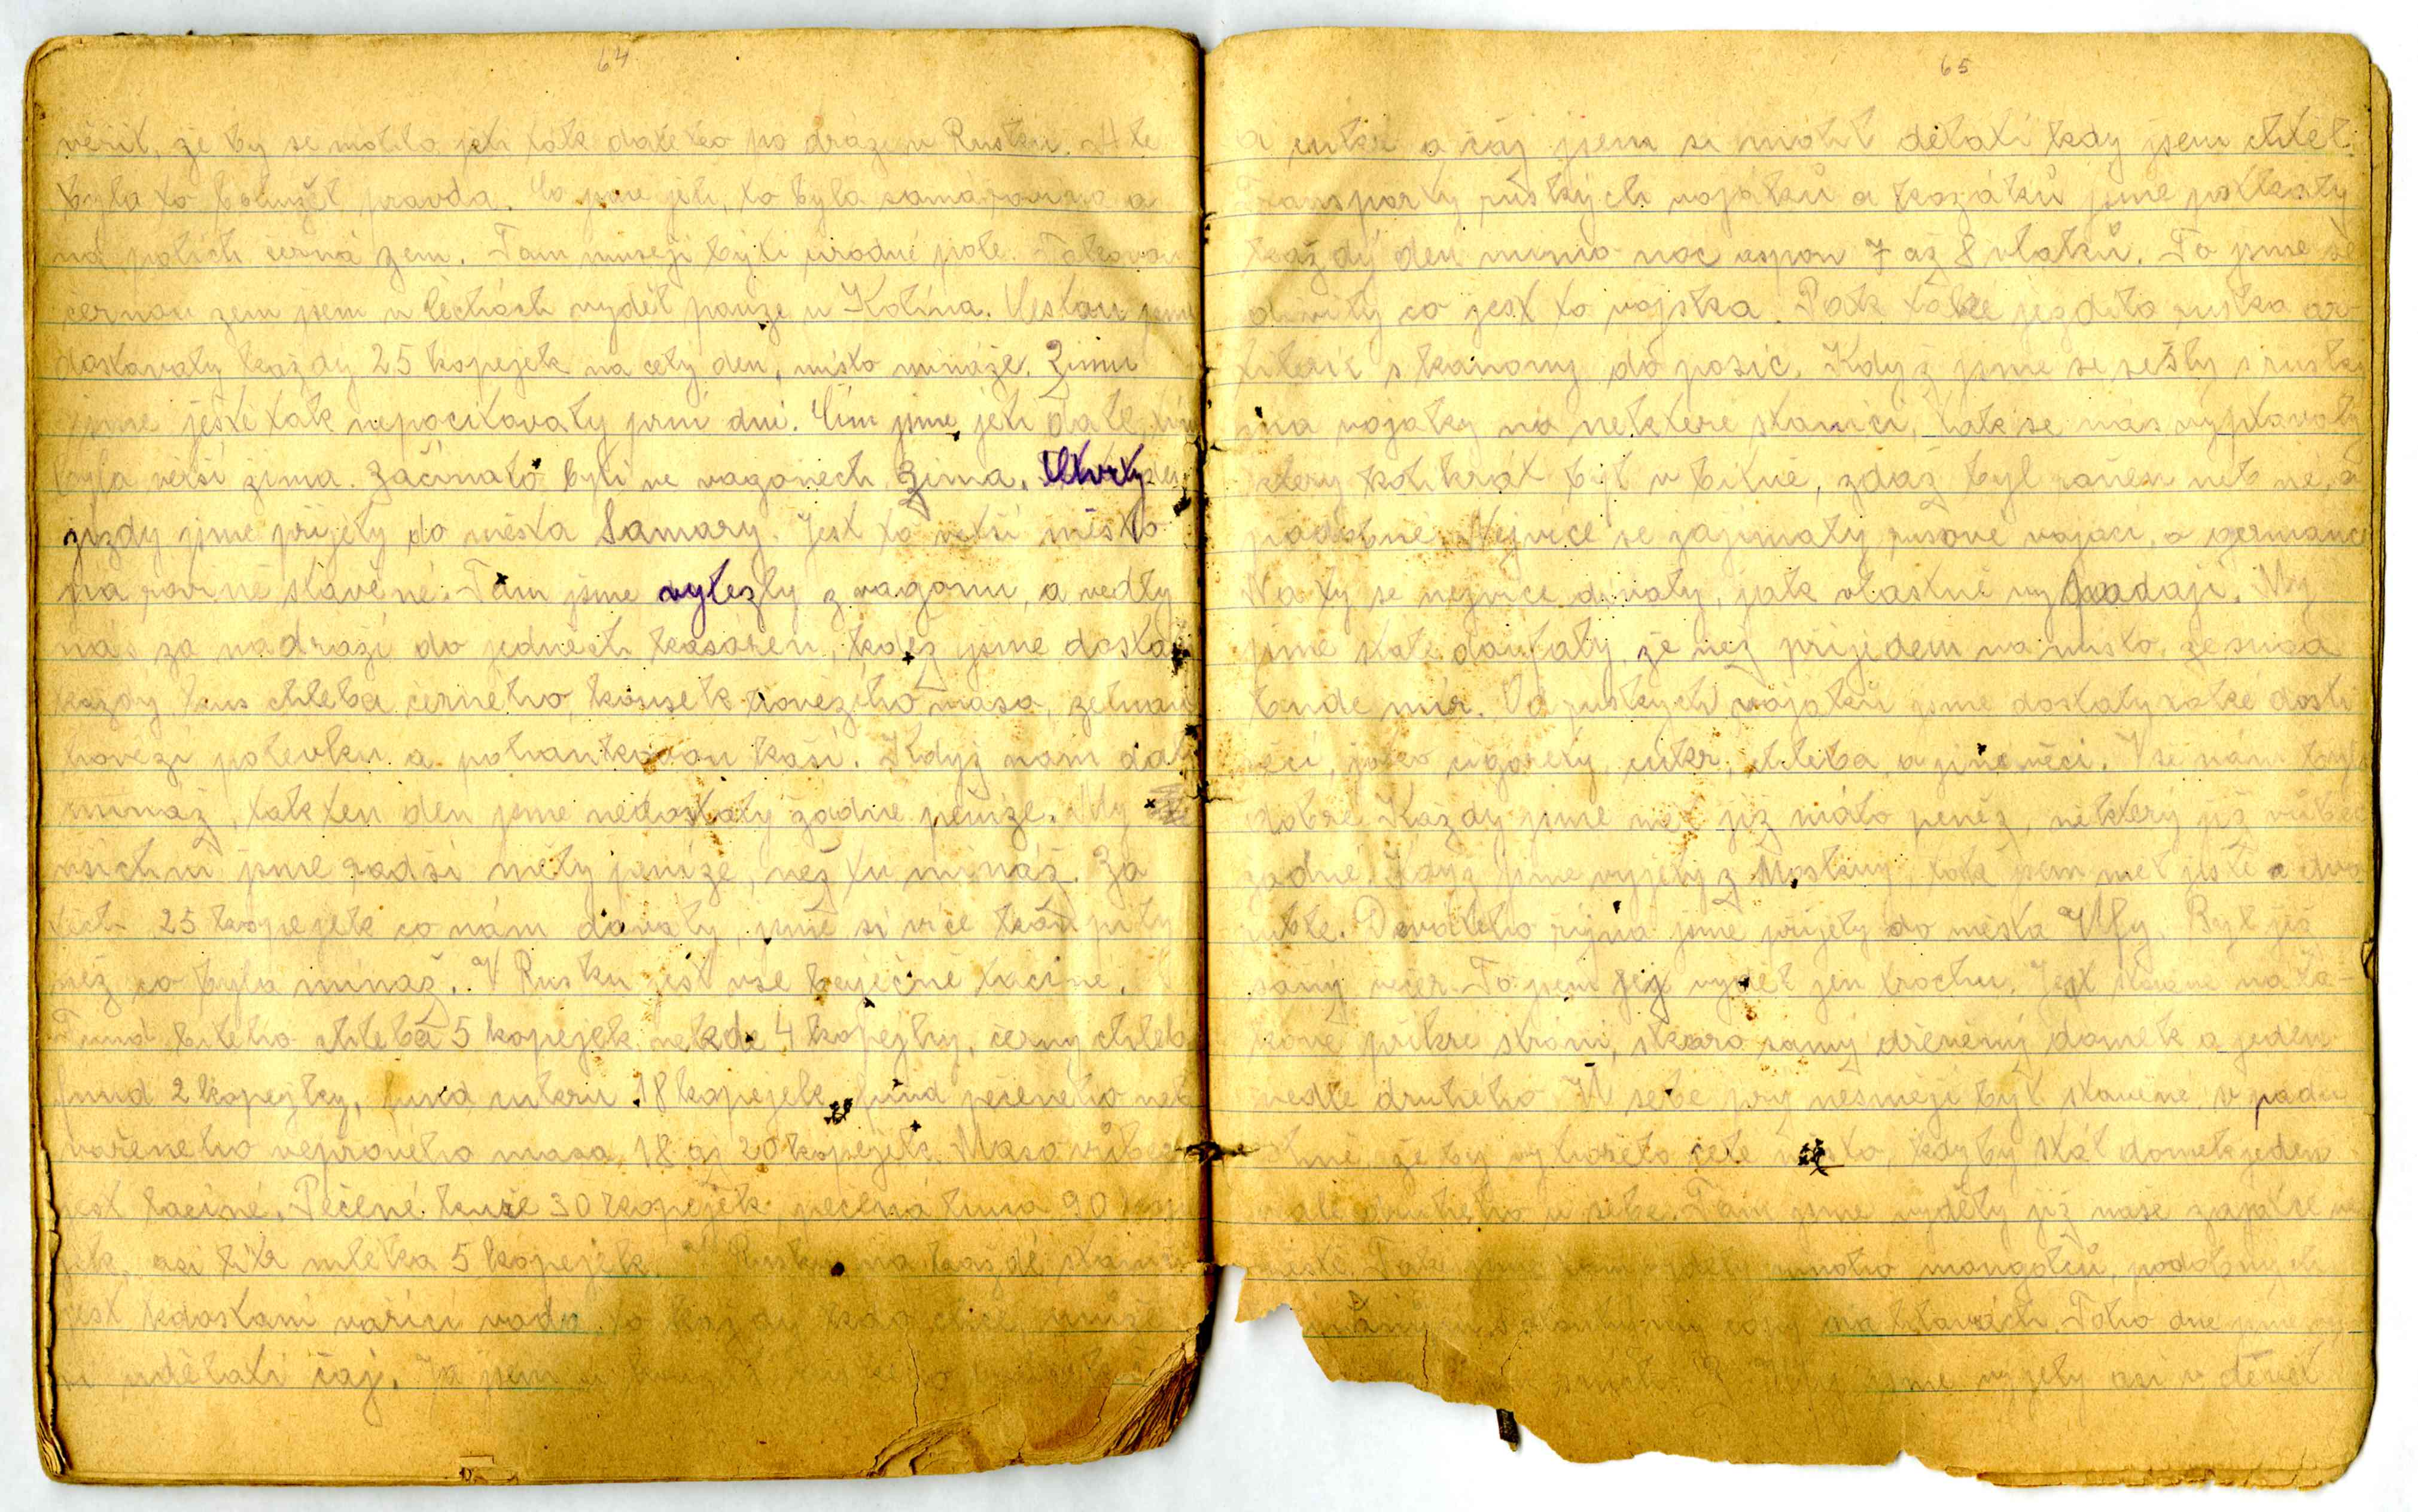 64
věřit, že by se mohlo jeti tak daleko po dráze v Rusku. Ale
byla to bohužel pravda. Co jsme jeli, to byla samá rovina a
na polích černá zem. Tam musejí býti úrodné pole. Takovou
černou zem jsem v Čechách vyděl pouze u Kolína. Cestou jsme
dostavaly každý 25 kopejek na celý den, místo mináže. Zimu
jsme ješte tak nepocitovaly prní dni. Čím jsme jeli dále, tím
byla věrší zima. Začínalo býti ve vagonech zima. Čtvrtý den
jízdy jsme přijely do města Samary. Jest to vetší město
na rovině stavěné. Tam jsme vylezly z vagonu, a vedly
nás za nadraží do jedněch kasáren, kdež jsme dostaly
každý kus chleba černého, kousek hovězího masa, zelnou
hovězí polevku a pohankovou kaši. Když nám dali
mináž, tak ten den jsme nedostaly žadne peníze. My
všichni jsme radši měly peníze, než tu mináž. Za
těch 25 kopejek co nám dávaly, jsme si více koupily
než co byla mináž. V Rusku jest vse baječně laciné.
Fund bileho chleba 5 kopejek, nekde 4 kopejky, černy chleb
fund 2 kopejky, fund cukru 18 kopejek, fund pečeneho neb
vařeneho vepřového masa 18 až 20 kopejek. Maso vůbec
jest laciné. Pečené kuře 30 kopejek, pečená husa 90 kope
jek, asi litr mléka 5 kopejek. V Rusku na každé stanici
jest kdostaní vařící voda, to každý kdo chce, muže
si udělati čaj. Já jsem si koupil
65
a cukr a čaj jsem si mohl dělati kdy jsem chtěl.
Transporty ruských vojáků a kozáků jsme potkaly
každý den mimo noc aspon 7 až 8 vlaků. To jsme se
divily co jest to vojska. Pak také jezdila ruska ar-
tilerie s kanony do posic. Když jsme se sešly s ruský
ma vojaky na nektere stanici, tak se nás vyptavaly
ktery kolikrát byl v bitvě, zdaž byl raněn neb né, a
podobně. Nejvíce se zajímaly rusové vojaci, o germance
Na ty se nejvíce dívaly, jak vlastně vypadají. My
jsme stale doufaly, že než přijedem na misto, že snad
bude mír. Od ruských vojáků jsme dostaly také dosti
věcí, jako cigarety, cukr, chleba, a jine věci. Vse nám bylo
dobré. Každy jsme měl již málo peněz, některý již vůbec
žadné. Když jsme vyjely z Moskvy, tak jsem měl ještě a dva
ruble. Devátého října jsme přijely do města Ufy. Byl již
samý večer. To jsem jej vyděl jen trochu. Jest stavěné na ta-
kové příkré strani, skoro samý dřevěný domek a jeden
vedle druhého. U sebe prý nesmějí být stavěné, v padu
ohně, že by vyhořelo celé město, kdyby stál domek jeden
vale druheho u sebe. Tam jsme vyděly již naše zajatce ve
městě. Take jsme tam vyděly mnoho mongolců, podobných
s dlouhými cosy na hlavách. Toho dne jsme vy-
jsme vyjely asi v devět